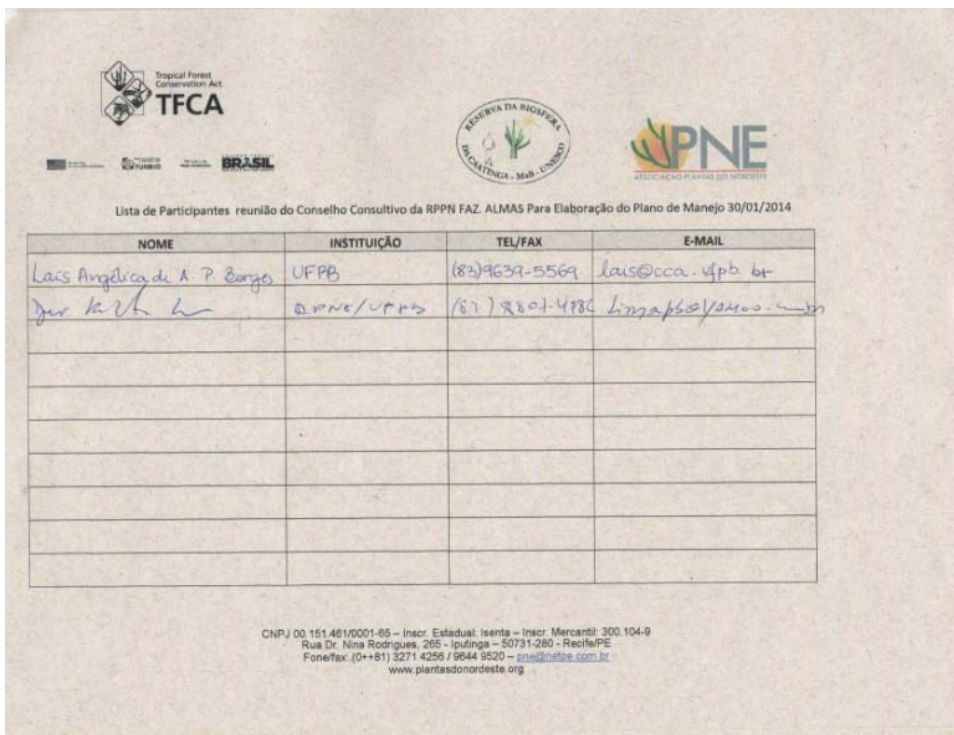 Tropical Forest
Conservation Act
TFCA
FUNBIO
BRASIL
RESERVA DA BIOSFERA
DA CAATINGA - MaB - UNESCO
PNE
ASSOCIAÇÃO PLANTAS DO NORDESTE
Lista de Participantes reunião do Conselho Consultivo da RPPN FAZ. ALMAS Para Elaboração do Plano de Manejo 30/01/2014
NOME INSTITUIÇÃO TEL/FAX E-MAIL
Lais Angélica de A. P. Borges UFPB (83)9639-5569 lais@cca.ufpb.br
CNPJ 00.151.461/0001-65 – Inscr. Estadual: Isenta – Inscr. Mercantil: 300.104-9
Rua Dr. Nina Rodrigues, 265 - Iputinga – 50731-280 - Recife/PE
Fone/fax: (0++81) 3271 4256 / 9644 9520 – pne@netpe.com.br
www.plantasdonordeste.org